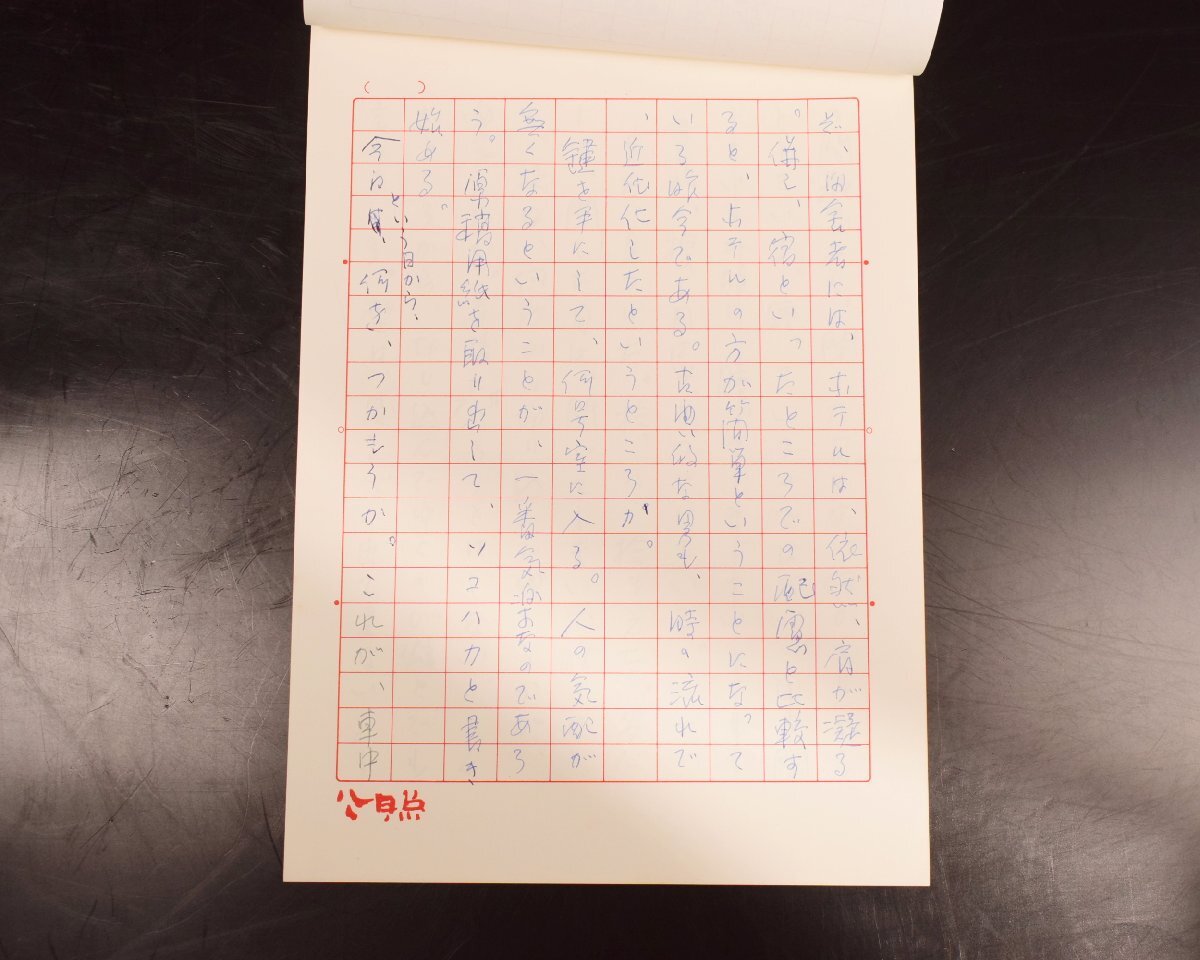 、田舎者には、ホテルは、依然、肩が凝る
。併し、宿といったところでの配慮と比較す
ると、ホテルの方が簡単ということになって
いる昨今である。古典的な男も、時の流れで
、近代化したというところか。
鍵を手にして、何号室に入る。人の気配が
無くなるということが、一番気楽なのであろ
う。原稿用紙を取り出して、ソコハカと書き
始める。
という目から、
今日は、何を、つかもうか。これが、車中